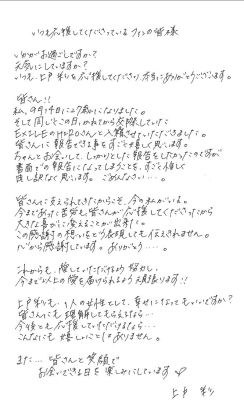 いつも応援してくださっているファンの皆様
いかがお過ごしですか？
元気にしていますか？
いつも上戸彩を応援してくださり、本当にありがとうございます。
皆さん!!
私、9月14日に27歳になりました。
そして同じこの日、かねてから交際していた
EXILEのHIROさんと入籍させていただきました。
皆さんに報告ができ事をすごく嬉しく思います。
ちゃんとお会いして、しっかりとした報告をしたかったのですが
書面での報告になってしまうことを、すごく
申し訳なく思います。ごめんなさい…。
皆さんに支えられてきたからこそ、今の私がいる。
今まであった苦労も皆さんが応援してくださったから
大きな喜びに変えることが出来た。
この感謝の想いをどう表現しても伝えきれません。
心から感謝しています。ありがとう…。
これからも、愛していただけるよう努力し、
今まで以上の愛を届けられるよう頑張ります!!
上戸彩も、1人の女性として、幸せになってもいいですか？
皆さんにも理解してもらえるなら…
今後とも応援していただけるなら…
こんなにも嬉しいことはありません。
また… 皆さんと笑顔で
お会いできる日を楽しみにしています♡
上戸 彩